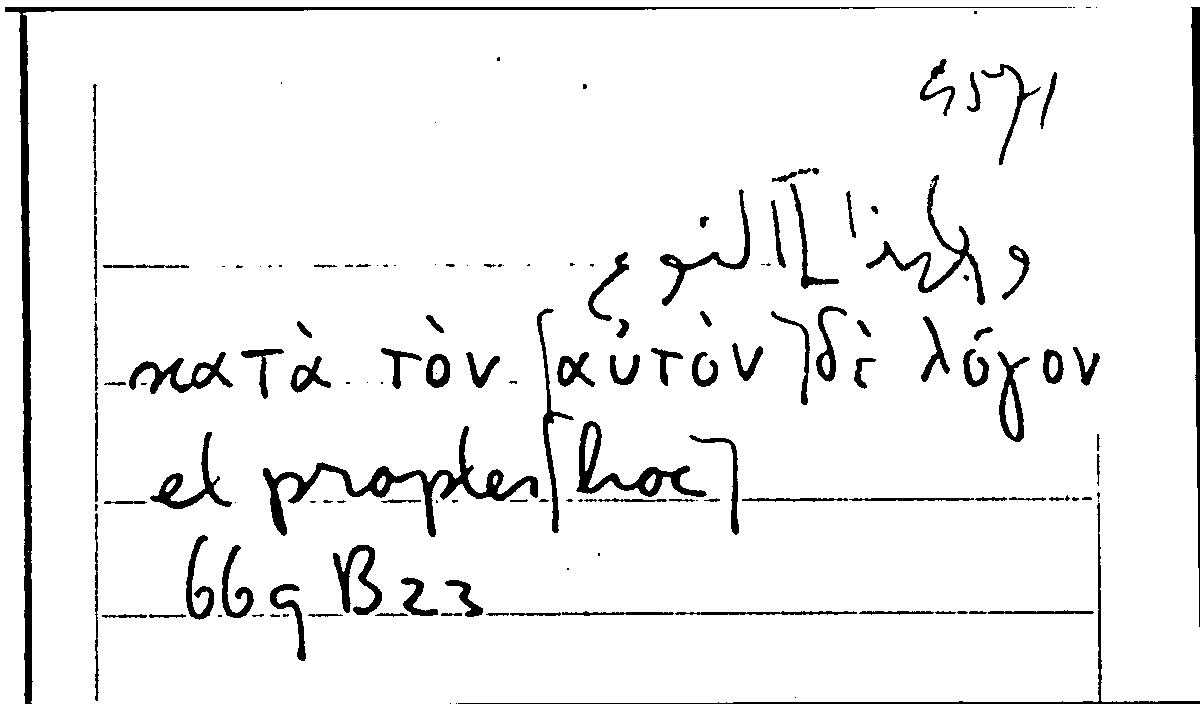 4571
κατὰ τὸν [αὐτὸν] δὲ λόγον
et propter [hoc]
669 B 23